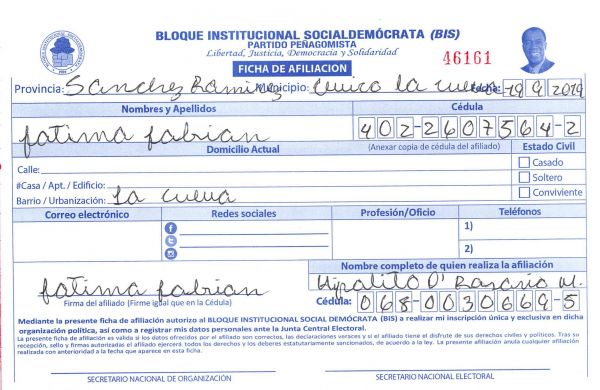 BLOQUE INSTITUCIONAL SOCIALDEMÓCRATA (BIS)
PARTIDO PEÑAGOMISTA
Libertad, Justicia, Democracia y Solidaridad
46161
FICHA DE AFILIACION
Provincia: Sanchez Ramirez Municipio: la cueva Fecha: 19 9 2019
Nombres y Apellidos Cédula
fatima fabrian 402-2607564-2
Domicilio Actual (Anexar copia de cédula del afiliado) Estado Civil
Calle: Casado
#Casa / Apt. / Edificio: Soltero
Barrio / Urbanización: La cueva Conviviente
Correo electrónico Redes sociales Profesión/Oficio Teléfonos
1)
2)
Nombre completo de quien realiza la afiliación
fatima fabrian Hipolito D' Rosario M.
Firma del afiliado (Firme igual que en la Cédula) Cédula: 068-0030669-5
Mediante la presente ficha de afiliación autorizo al BLOQUE INSTITUCIONAL SOCIAL DEMÓCRATA (BIS) a realizar mi inscripción única y exclusiva en dicha
organización política, así como a registrar mis datos personales ante la Junta Central Electoral.
La presente ficha de afiliación es válida si los datos ofrecidos por el afiliado son correctos, las declaraciones veraces y si el afiliado tiene el disfrute de sus derechos civiles y políticos. Tras su
recepción, sello y firmas autorizadas el afiliado ejercerá todos los derechos y los deberes estatutariamente sancionados, de acuerdo a la ley. La presente afiliación anula cualquier afiliación
realizada con anterioridad a la fecha que aparece en esta ficha.
SECRETARIO NACIONAL DE ORGANIZACIÓN SECRETARIO NACIONAL ELECTORAL